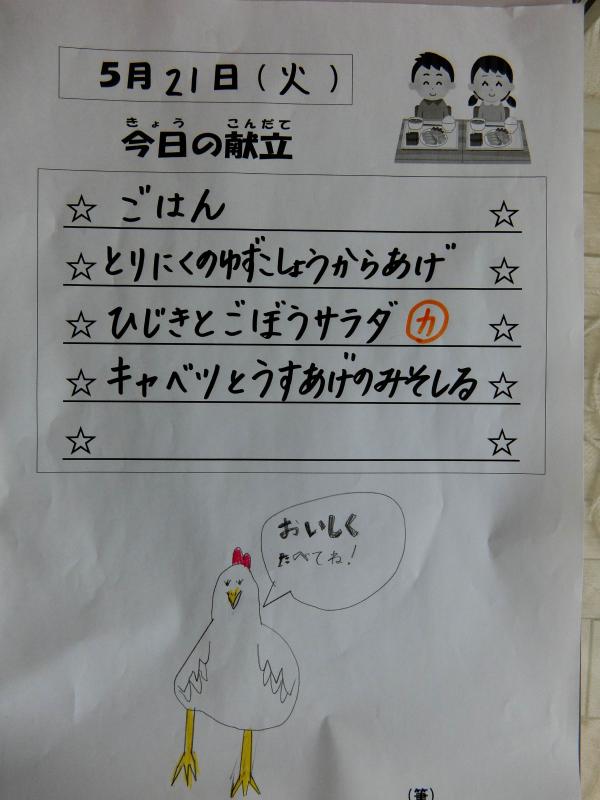 5月21日(火)
きょう こんだて
今日の献立
☆ ごはん ☆
☆ とりにくのゆずこしょうからあげ ☆
☆ ひじきとごぼうサラダ カ ☆
☆ キャベツとうすあげのみそしる ☆
☆ ☆
おいしく
たべてね!
(筆)